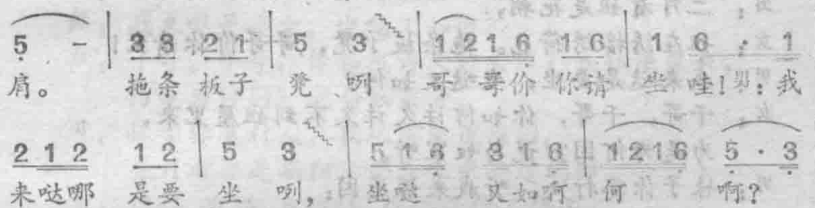 5 - | 3 3 2 1 | 5 3 | 1 2 1 6 1 6 | 1 6 · 1
肩。 拖条 板子 凳 啊 哥 哥价 你请 坐 哇!男:我
2 1 2 1 2 | 5 3 | 5 1 6 3 1 6 | 1 2 1 6 5 · 3
来哒哪 是要 坐 咧, 坐哒 又如何 啊?